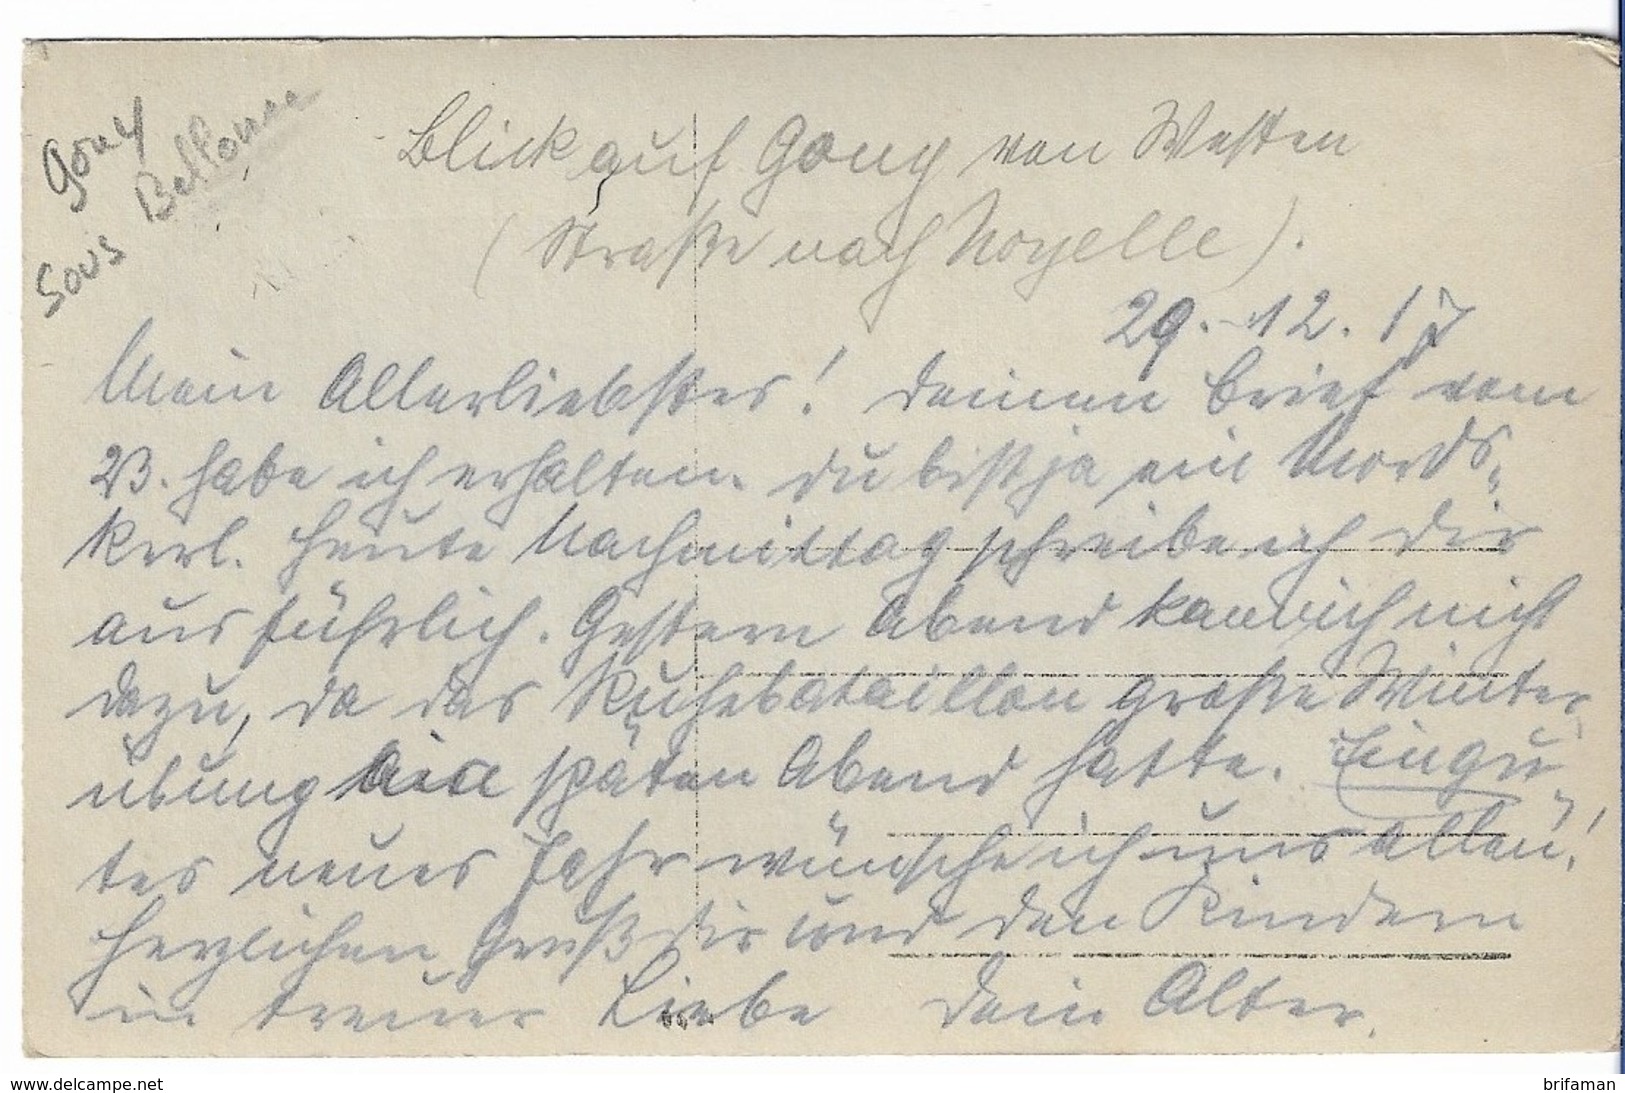 Gouy
sous Bellonne
Blick auf Gouy von Westen
(Straße nach Noyelle).
29. 12. 17
Mein Allerliebstes! Deinen Brief vom
23. habe ich erhalten. Du bist ja ein Mords-
kerl. Heute Nachmittag schreibe ich Dir
ausführlich. Gestern Abend kam ich nicht
dazu, da das Ruhebataillon große Winter
übung am späten Abend hatte. Ein gu-
tes neues Jahr wünsche ich uns allen!
Herzlichen Gruß Dir und den Kindern
in treuer Liebe Dein Alter.
www.delcampe.net
brifaman